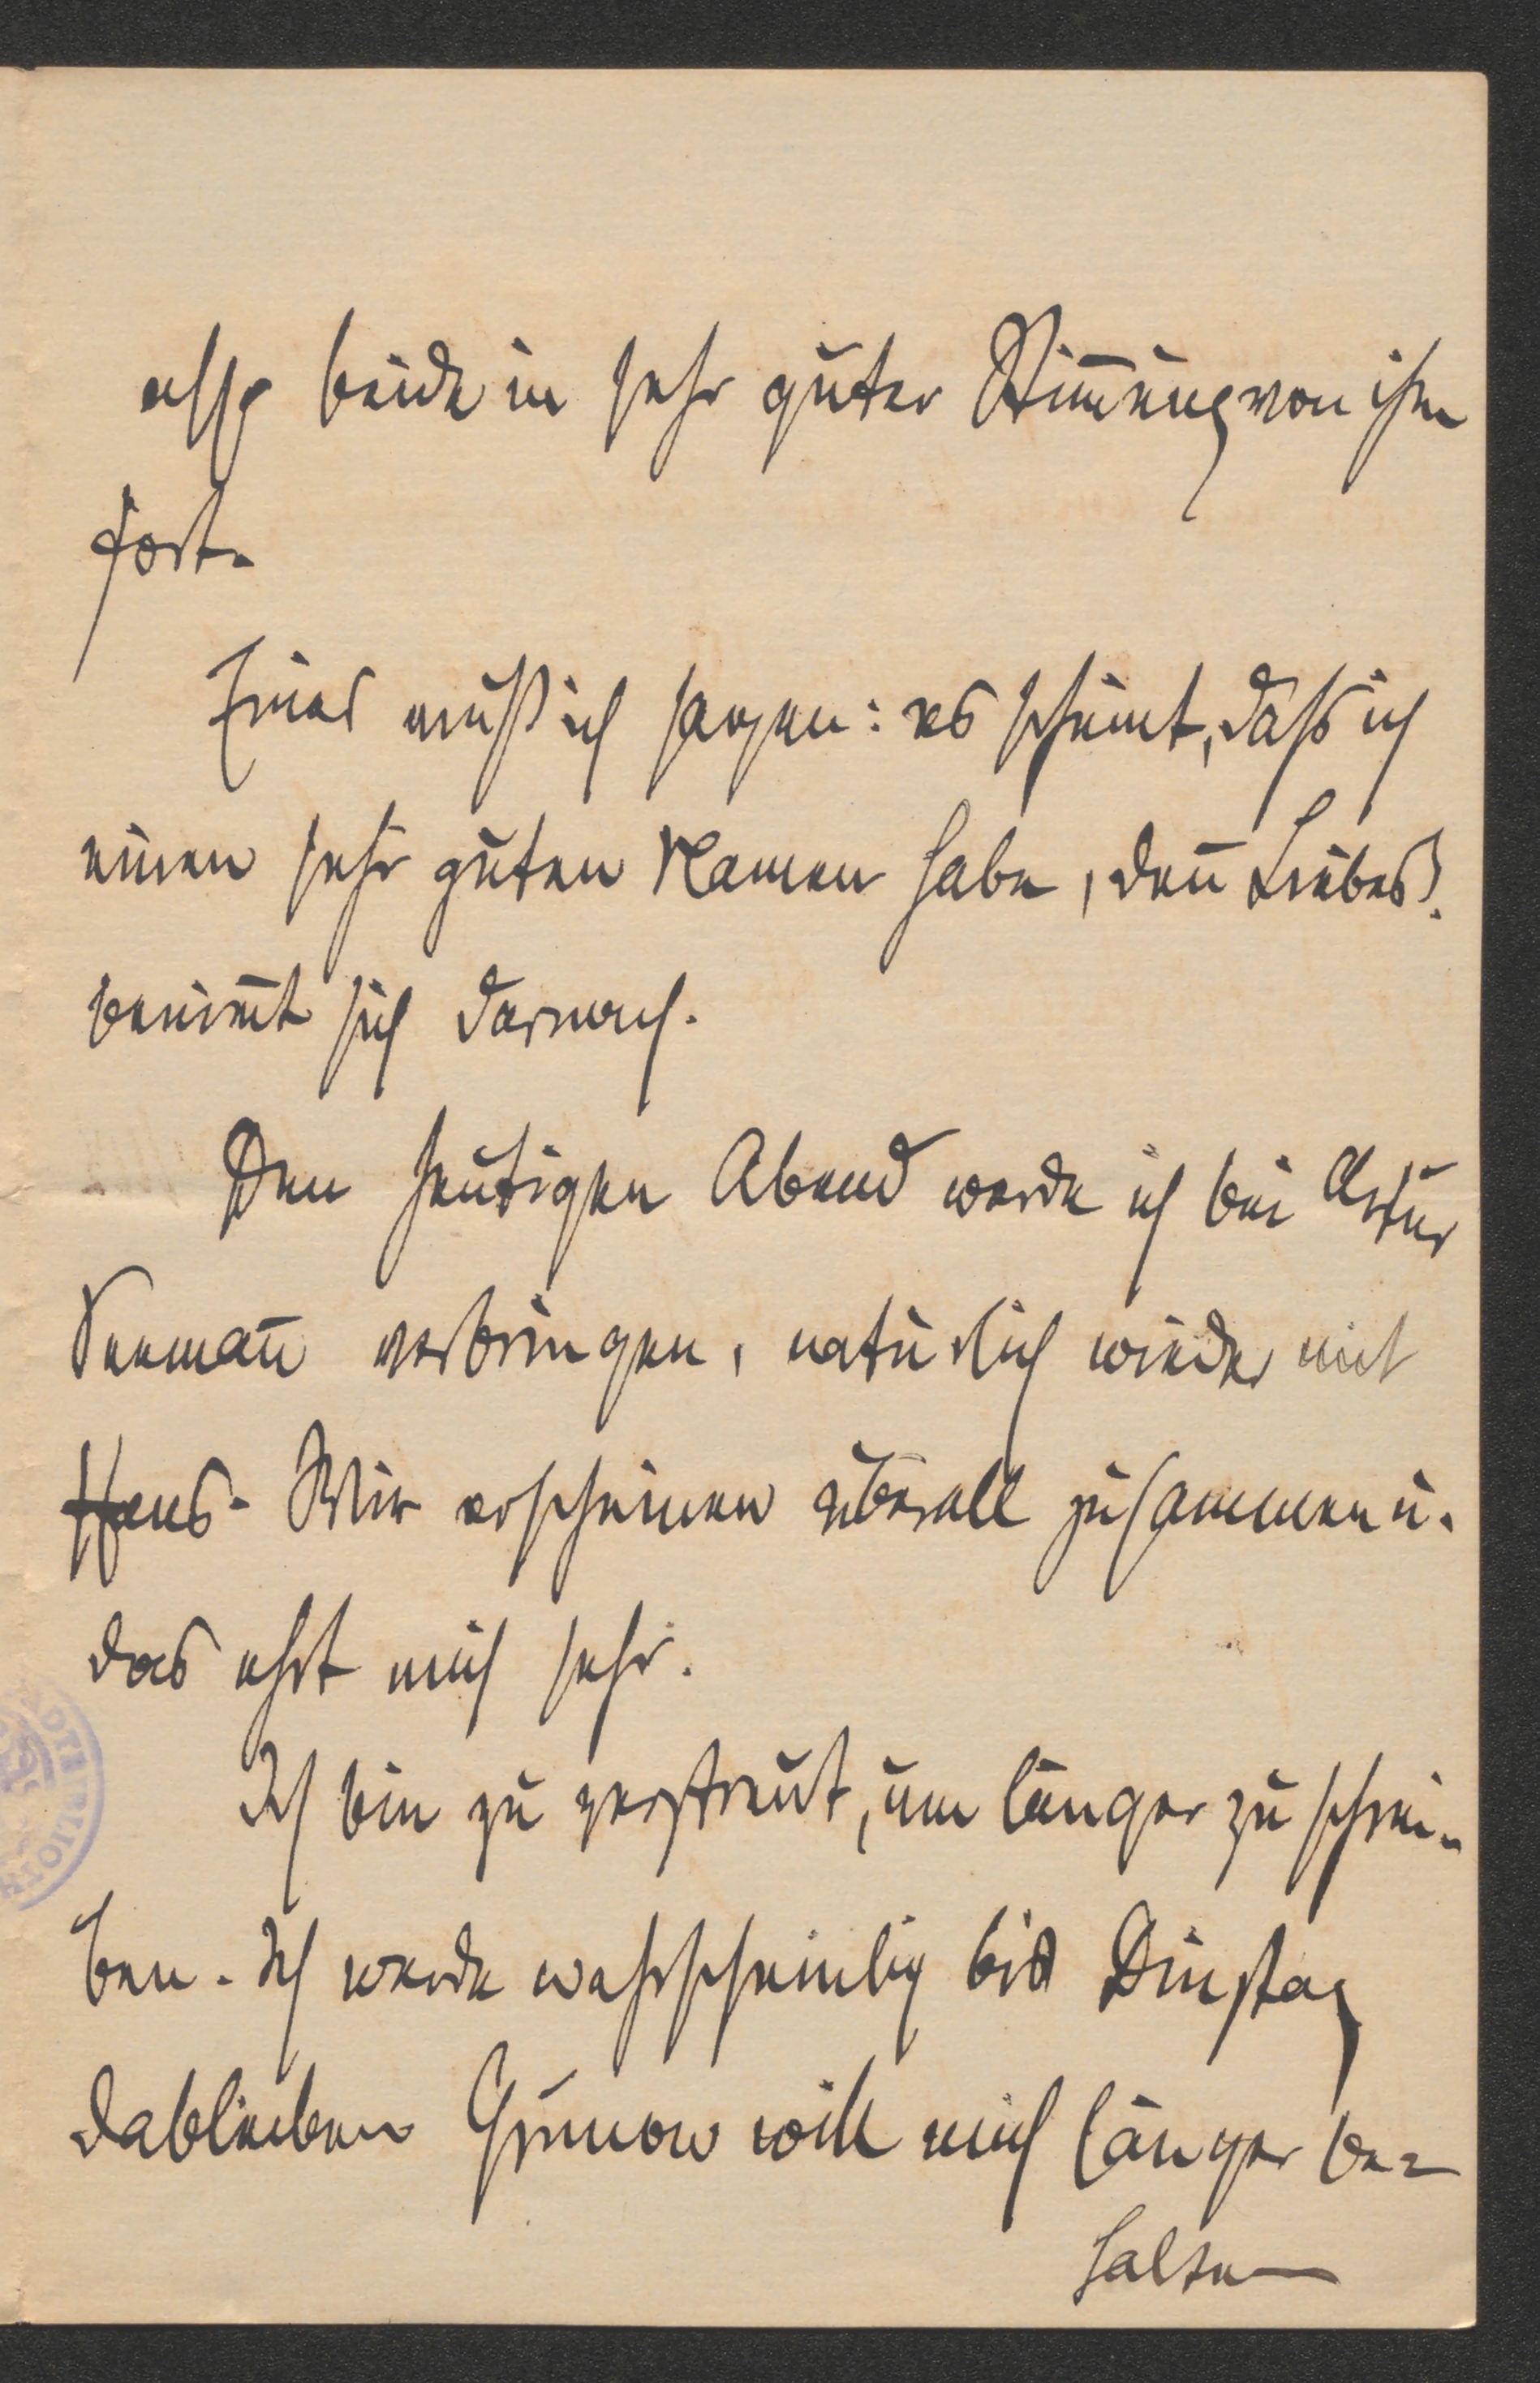 also beide in sehr guter Stim̄ung von ihm
fort.
Eines muß ich sagen: es scheint, dass ich
einen sehr guten Namen habe, den̄ Liebes.
benim̄t sich darnach.
Den heutigen Abend werde ich bei Artur
Seeman̄ verbringen, natürlich wieder mit
Haus. Wir erscheinen überall zusammen u.
das ehrt mich sehr.
Ich bin zu zerstreut, um länger zu schrei-
ben. Ich werde wahrscheinlich bis Dinstag
dableiben Grunow will mich länger be-
halten